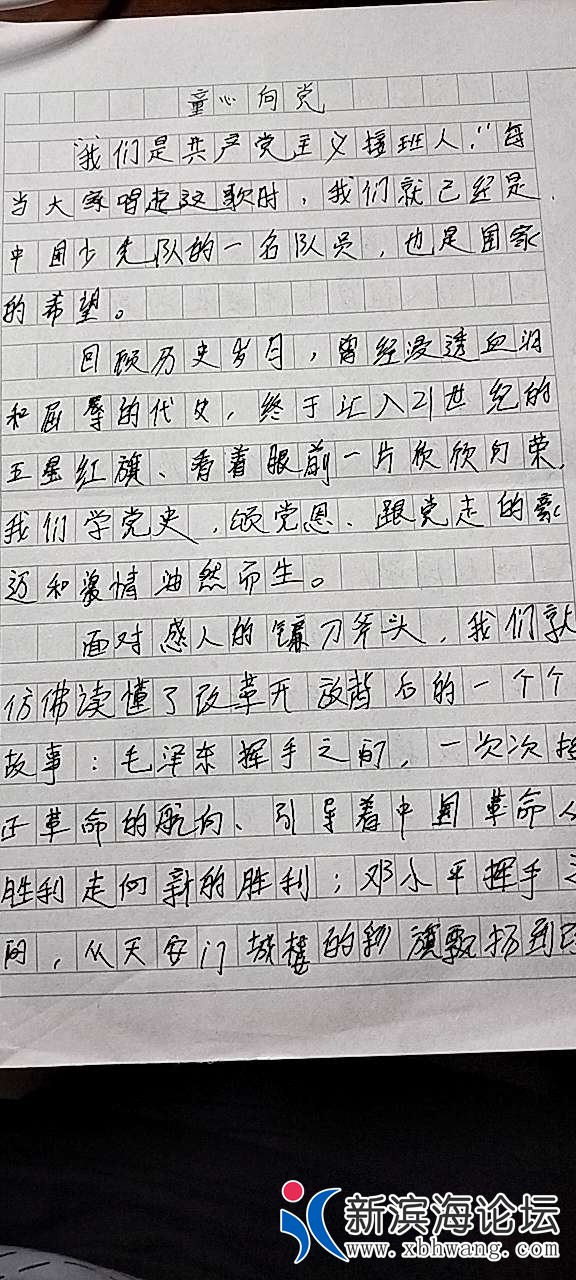 童心向党
“我们是共产党主义接班人.”每
当大家唱起这歌时，我们就已经是
中国少先队的一名队员，也是国家
的希望。
回顾历史岁月，曾经浸透血泪
和屈辱的代史，终于汇入21世纪的
五星红旗、看着眼前一片欣欣向荣，
我们学党史，颂党恩、跟党走的豪
迈和激情油然而生。
面对感人的镰刀斧头，我们就
仿佛读懂了改革开放背后的一个个
故事：毛泽东挥手之间，一次次
正革命的航向、引导着中国革命从
胜利走向新的胜利；邓小平挥手之
间，从天安门城楼的彩旗飘扬到
新滨海论坛
www.xbhwang.com